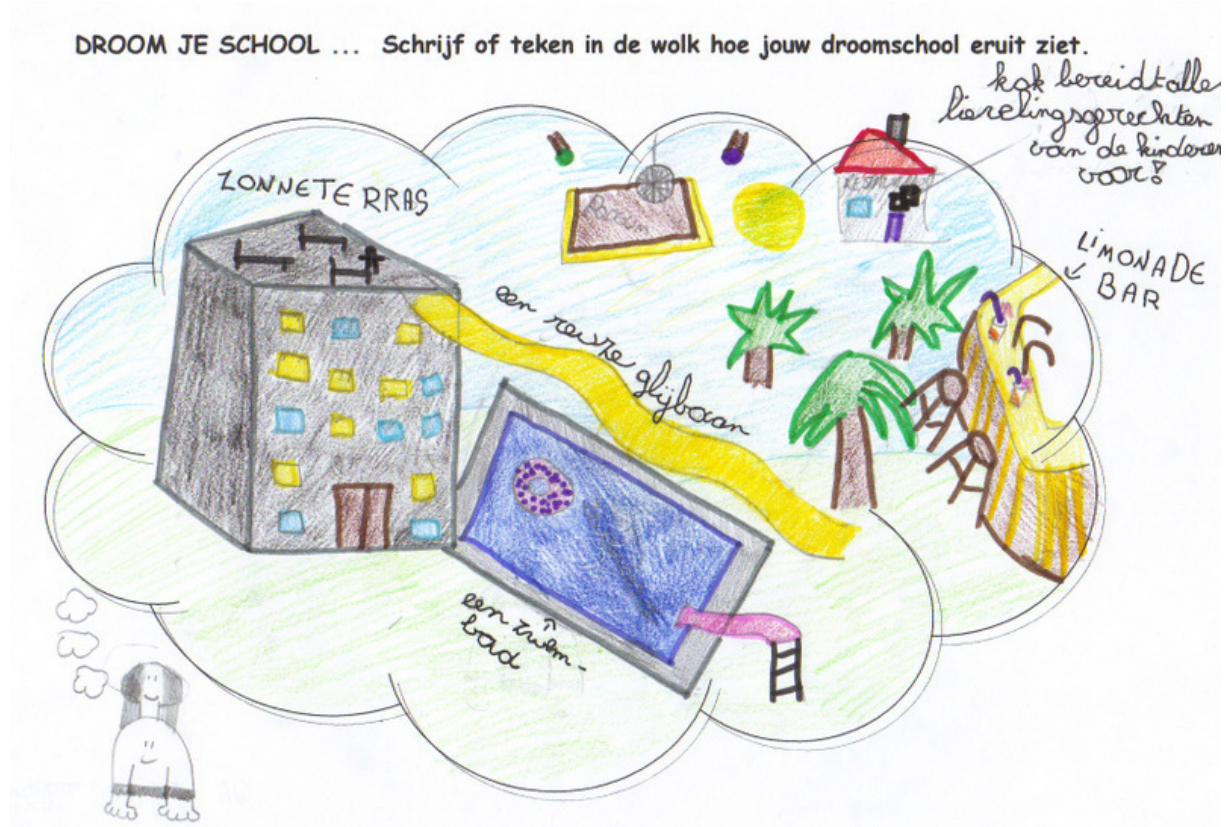 DROOM JE SCHOOL ... Schrijf of teken in de wolk hoe jouw droomschool eruit ziet.
kok bereidt alle
lievelingsgerechten
van de kinderen
voor!
ZONNETERRAS
LIMONADE
BAR
een reuze glijbaan
een zwem-
bad